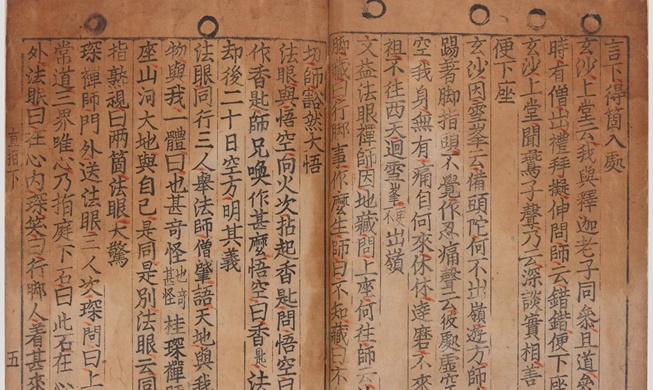 言下得箇入處
玄沙上堂云我與釋迦老子同叅且道叅
時有僧出禮拜擬伸問師云錯錯便下座
玄沙上堂聞鷰子聲乃云深談實相善
便下座
玄沙因雪峯云備頭陀何不出嶺遊方師
踢著脚指頭不覺作忍痛聲云彼處虛空
空我身無有痛自何來休休達磨不來
祖不往西天迴雪峯出嶺
文益法眼禪師因地藏問上座何往師云
脚藏曰行脚事作麽生師曰不知藏曰不
切師豁然大悟
法眼與悟空向火次拈起香匙問悟空曰
作香匙師兄喚作甚麽悟空曰香匙法
却後二十日空方明其義
法眼同行三人舉法師僧肇語天地與我
物與我一體曰也甚奇怪桂琛禪
座山河大地與自己是同是別法眼云同
指熟視曰兩箇法眼大驚
琛禪師門外送法眼三人次琛問曰上
常道三界唯心乃指庭下石曰此石在心
外法眼曰在心內琛笑曰行脚人着甚來
直指下 五